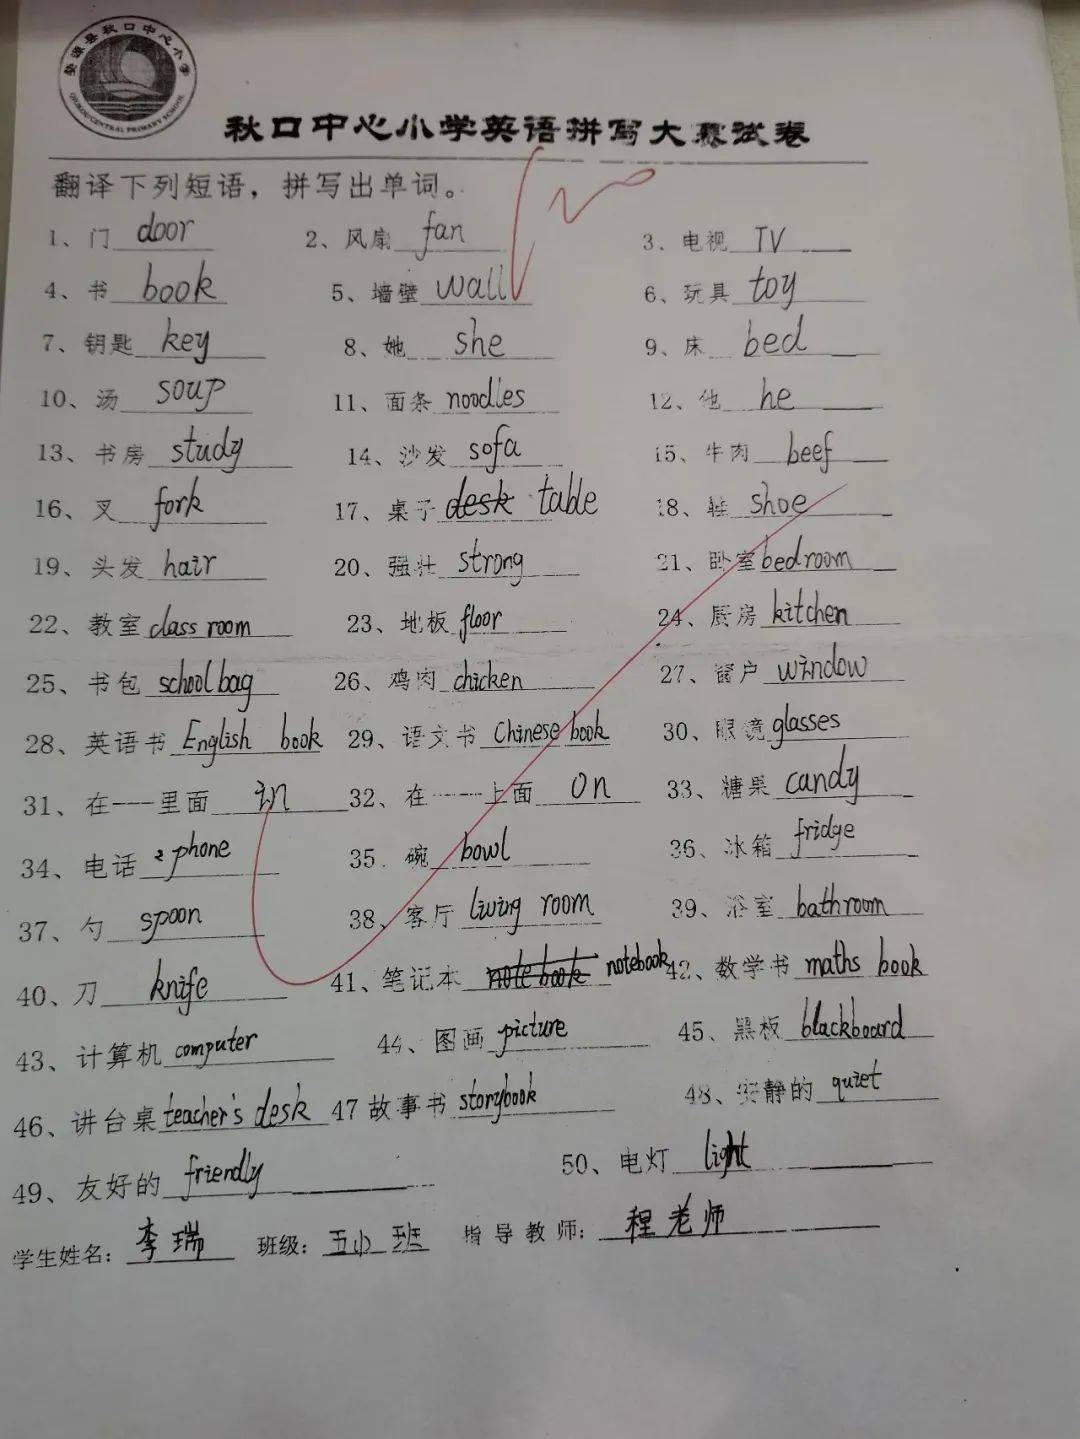 婺源县秋口中心小学
QIUKOU CENTRAL PRIMARY SCHOOL
秋口中心小学英语拼写大赛试卷
翻译下列短语，拼写出单词。
1、门 door 2、风扇 fan 3、电视 TV
4、书 book 5、墙壁 wall 6、玩具 toy
7、钥匙 key 8、她 she 9、床 bed
10、汤 soup 11、面条 noodles 12、他 he
13、书房 study 14、沙发 sofa 15、牛肉 beef
16、叉 fork 17、桌子 desk table 18、鞋 shoe
19、头发 hair 20、强壮 strong 21、卧室 bedroom
22、教室 class room 23、地板 floor 24、厨房 kitchen
25、书包 schoolbag 26、鸡肉 chicken 27、窗户 window
28、英语书 English book 29、语文书 Chinese book 30、眼镜 glasses
31、在----里面 in 32、在----上面 on 33、糖果 candy
34、电话 phone 35、碗 bowl 36、冰箱 fridge
37、勺 spoon 38、客厅 living room 39、浴室 bathroom
40、刀 knife 41、笔记本 note book notebook 42、数学书 maths book
43、计算机 computer 44、图画 picture 45、黑板 blackboard
46、讲台桌 teacher's desk 47 故事书 storybook 48、安静的 quiet
49、友好的 friendly 50、电灯 light
学生姓名：李瑞 班级：五小班 指导教师：程老师